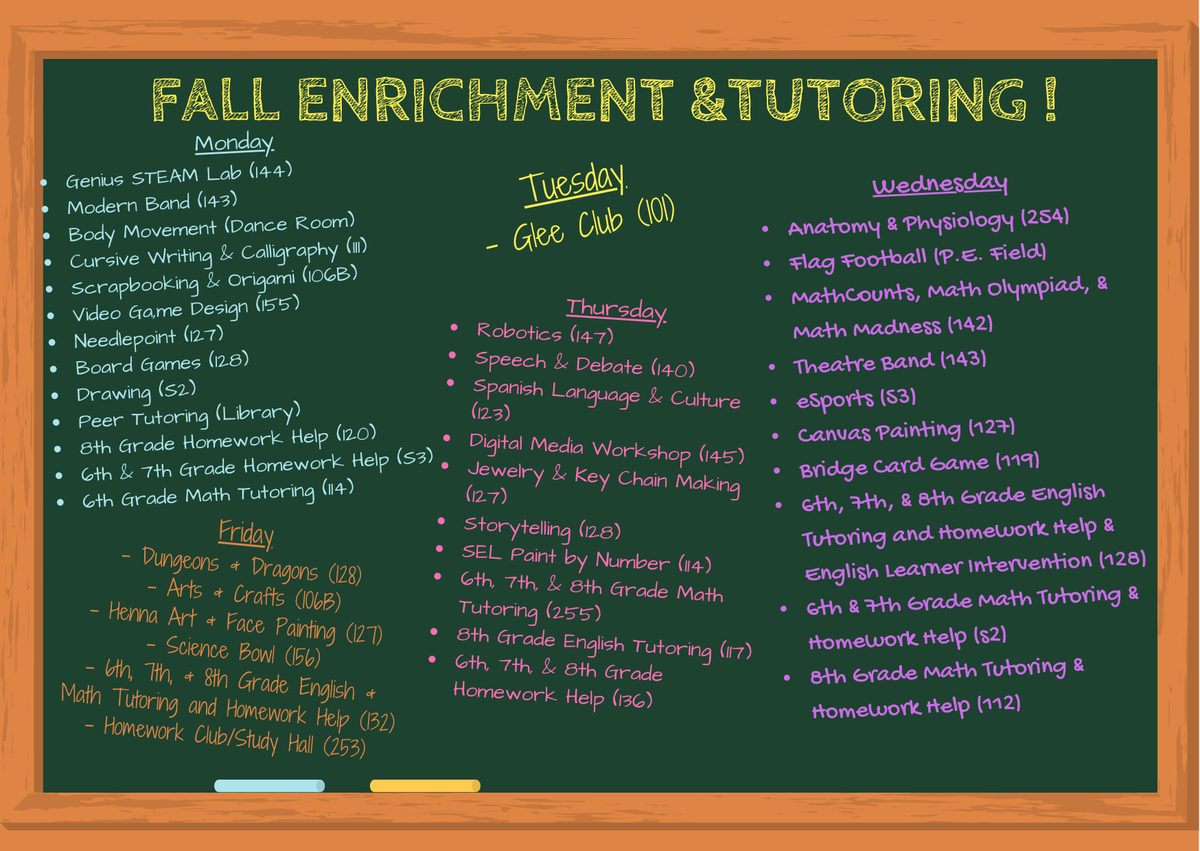 FALL ENRICHMENT &TUTORING !
Monday
Genius STEAM Lab (144)
Modern Band (143)
Body Movement (Dance Room)
Cursive Writing & Calligraphy (111)
Scrapbooking & Origami (106B)
Video Game Design (155)
Needlepoint (127)
Board Games (128)
Drawing (S2)
Peer Tutoring (Library)
8th Grade Homework Help (120)
6th & 7th Grade Homework Help (S3)
6th Grade Math Tutoring (114)
Tuesday
- Glee Club (101)
Wednesday
Anatomy & Physiology (254)
Flag Football (P.E. Field)
MathCounts, Math Olympiad, &
Math Madness (142)
Theatre Band (143)
eSports (S3)
Canvas Painting (127)
Bridge Card Game (119)
6th, 7th, & 8th Grade English
Tutoring and Homework Help &
English Learner Intervention (128)
6th & 7th Grade Math Tutoring &
Homework Help (S2)
8th Grade Math Tutoring &
Homework Help (112)
Thursday
Robotics (147)
Speech & Debate (140)
Spanish Language & Culture
(123)
Digital Media Workshop (145)
Jewelry & Key Chain Making
(127)
Storytelling (128)
SEL Paint by Number (114)
6th, 7th, & 8th Grade Math
Tutoring (255)
8th Grade English Tutoring (117)
6th, 7th, & 8th Grade
Homework Help (136)
Friday
- Dungeons & Dragons (128)
- Arts & Crafts (106B)
- Henna Art & Face Painting (127)
- Science Bowl (156)
- 6th, 7th, & 8th Grade English &
Math Tutoring and Homework Help (132)
- Homework Club/Study Hall (253)